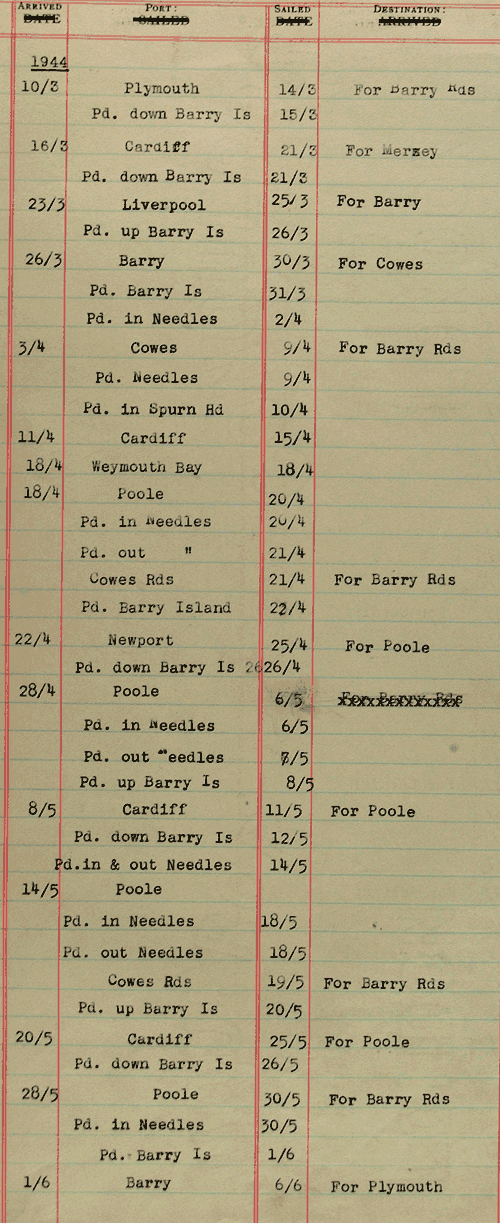 ARRIVED PORT: SAILED DESTINATION:
DATE SAILED DATE ARRIVED
1944
10/3 Plymouth 14/3 For Barry Rds
Pd. down Barry Is 15/3
16/3 Cardiff 21/3 For Mersey
Pd. down Barry Is 21/3
23/3 Liverpool 25/3 For Barry
Pd. up Barry Is 26/3
26/3 Barry 30/3 For Cowes
Pd. Barry Is 31/3
Pd. in Needles 2/4
3/4 Cowes 9/4 For Barry Rds
Pd. Needles 9/4
Pd. in Spurn Hd 10/4
11/4 Cardiff 15/4
18/4 Weymouth Bay 18/4
18/4 Poole 20/4
Pd. in Needles 20/4
Pd. out " 21/4
Cowes Rds 21/4 For Barry Rds
Pd. Barry Island 22/4
22/4 Newport 25/4 For Poole
Pd. down Barry Is 26 26/4
28/4 Poole 6/5 For Barry Rds
Pd. in Needles 6/5
Pd. out Needles 7/5
Pd. up Barry Is 8/5
8/5 Cardiff 11/5 For Poole
Pd. down Barry Is 12/5
Pd.in & out Needles 14/5
14/5 Poole
Pd. in Needles 18/5
Pd. out Needles 18/5
Cowes Rds 19/5 For Barry Rds
Pd. up Barry Is 20/5
20/5 Cardiff 25/5 For Poole
Pd. down Barry Is 26/5
28/5 Poole 30/5 For Barry Rds
Pd. in Needles 30/5
Pd. Barry Is 1/6
1/6 Barry 6/6 For Plymouth